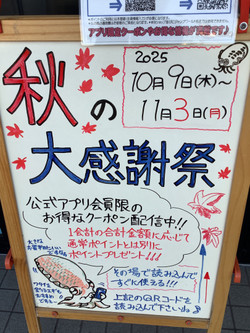 アプリ限定クーポンやお得な情報が満載です!
2025
10月9日(木)〜
11月3日(月)
秋の
大感謝祭
公式アプリ会員限の
お得なクーポン配信中!!
1会計の合計金額に応じて
通常ポイントとは別に
ポイントプレゼント!!!
その場で読み込んで
すぐに使える!!!
上記のQRコードを
読み込んで下さいね